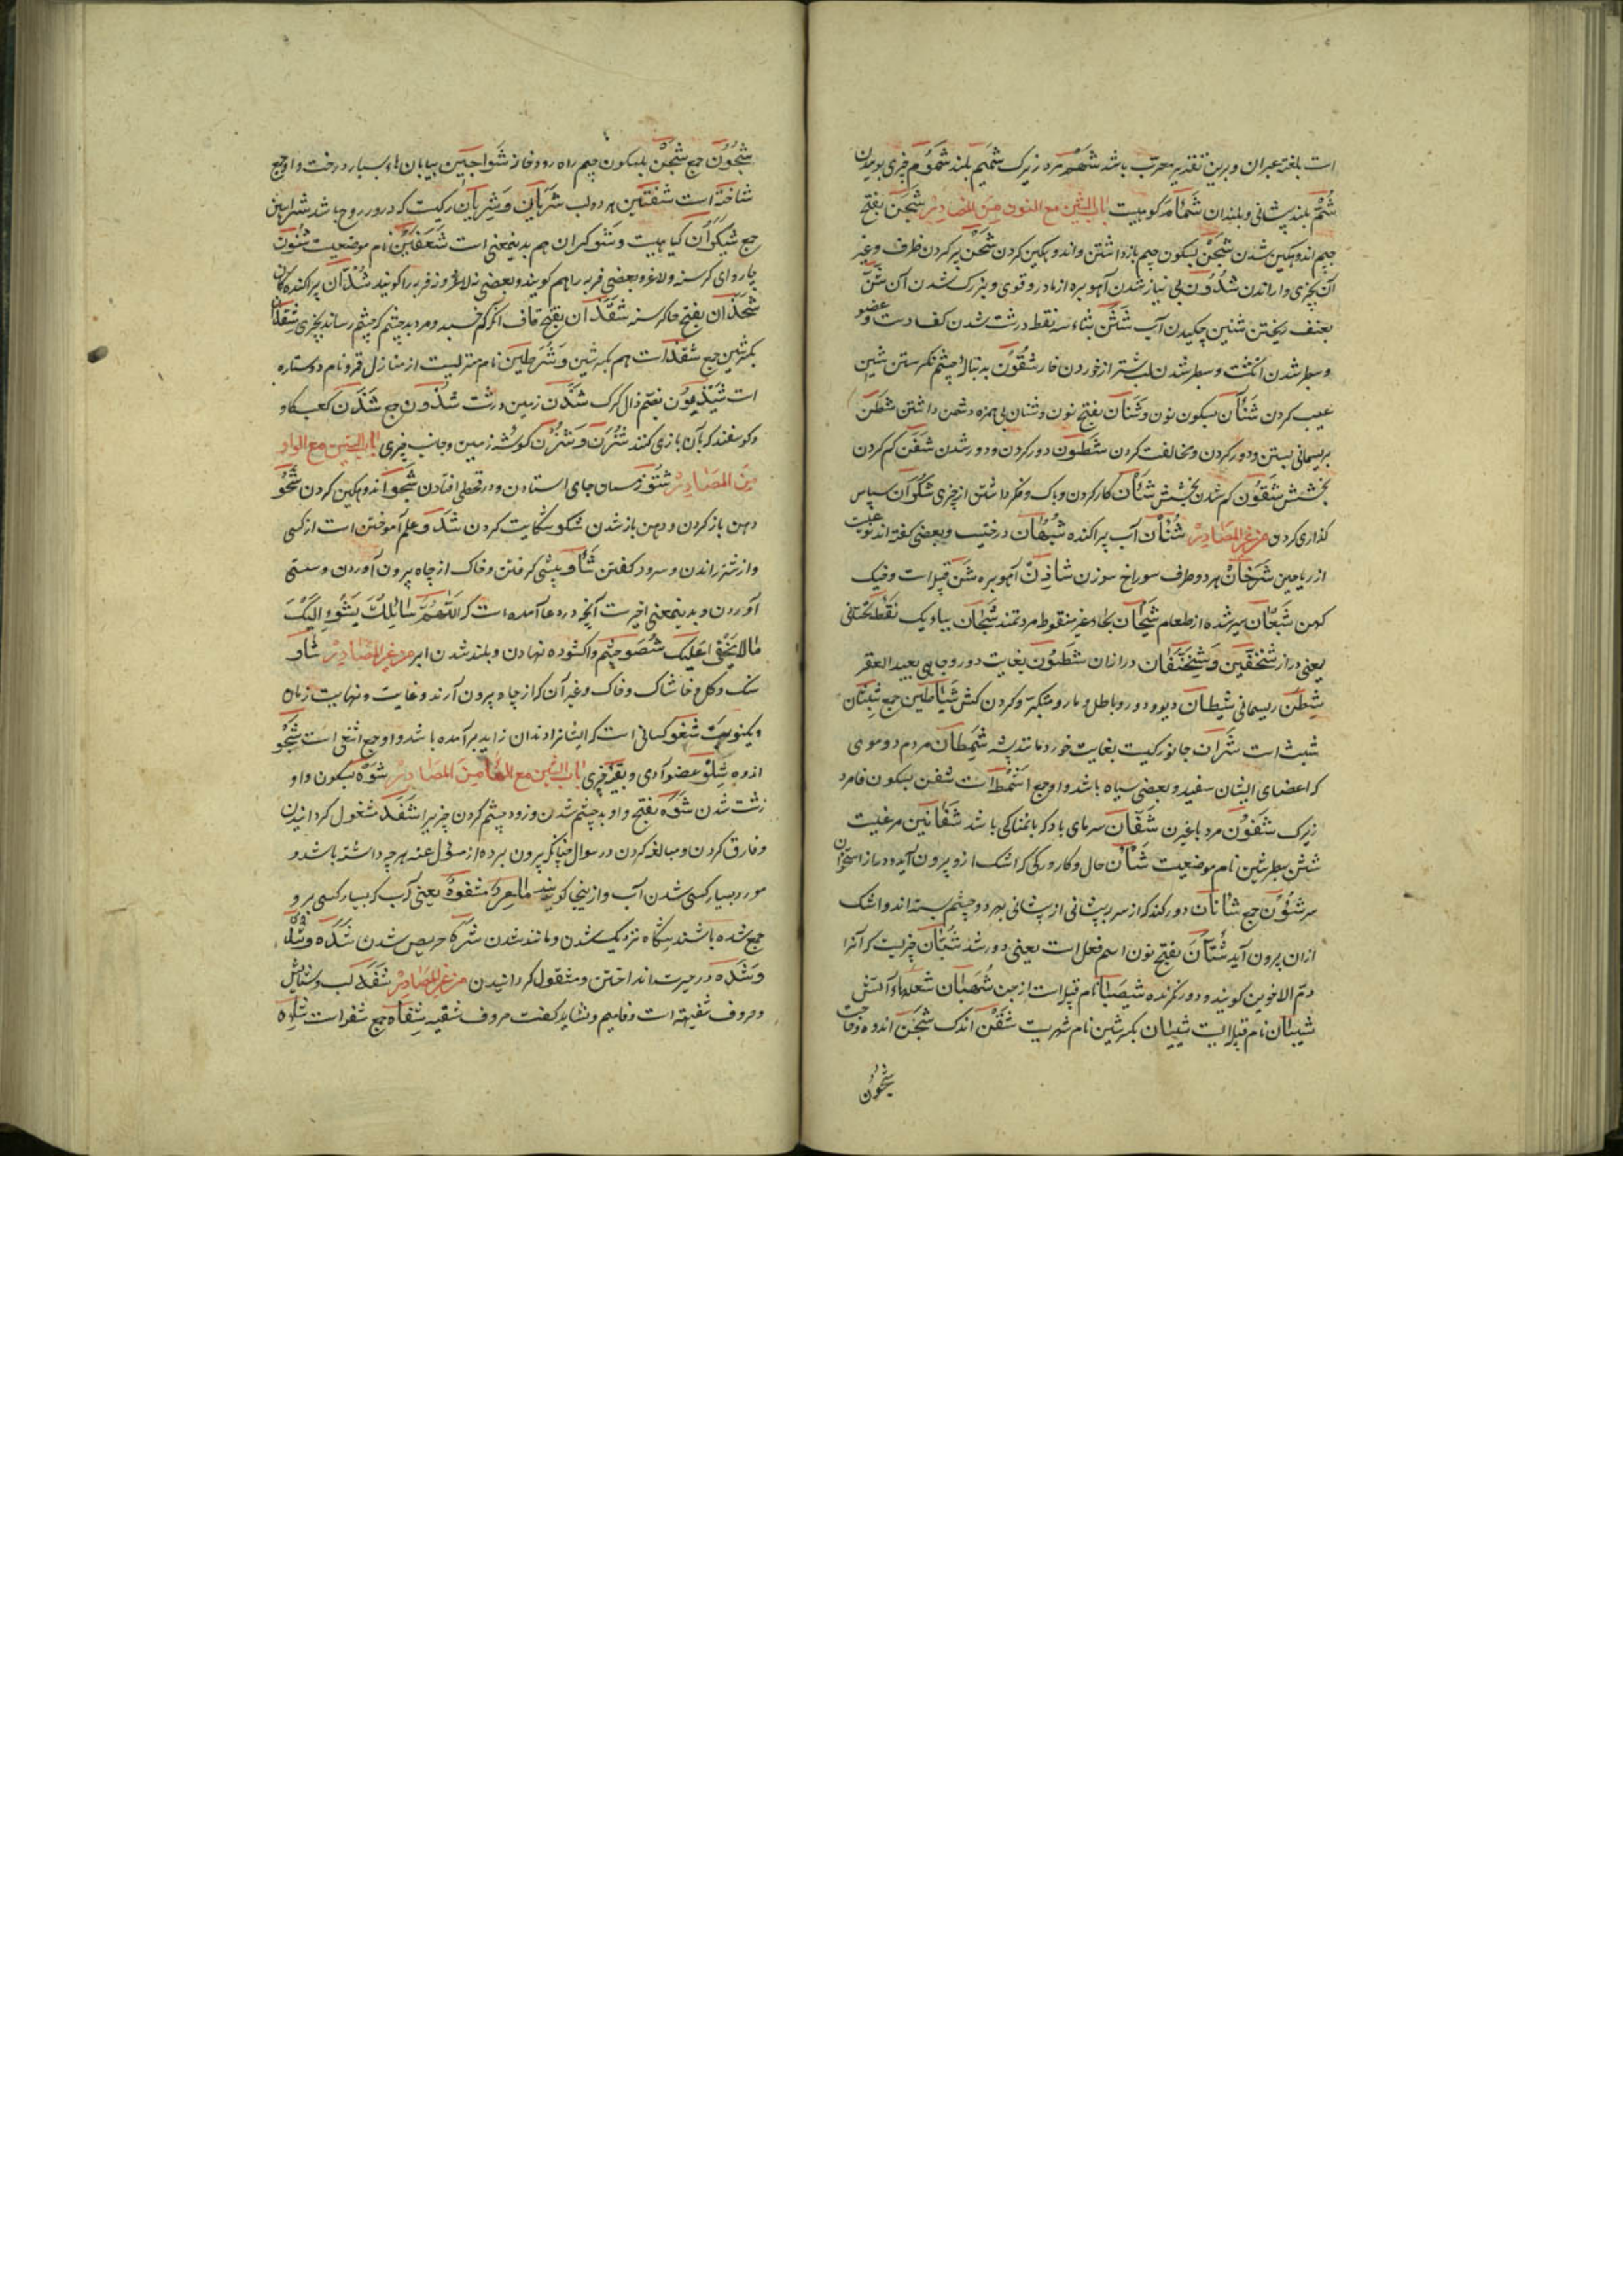 است بلغة عبران و برین تقدیر معرب باشد شهم مرد زیرک شمیم بلند شموم چیزی بوییدن
شم بلند پیشانی و بلندان شمام کوهیست باب الشین مع النون من المصادر شجن بفتح
جیم اندوهکین شدن شجن بسکون جیم بازداشتن و اندوهکین کردن شحن پر کردن ظرف و غیر
آن بچیزی و راندن شدون بی نیاز شدن آهو بره از مادر و قوی و بزرک شدن آن شن
بعنف ریختن شنین چکیدن آب شثن بثاء سه نقطه درشت شدن کف دست و عضو
و سطبر شدن انکشت و سطبر شدن لب شتر از خوردن خار شفون بدنبال چشم نکرستن شین
عیب کردن شنآن بسکون نون و شنآن بفتح نون و شنان بی همزه دشمن داشتن شطن
بریسمانی بستن و دور کردن و مخالفت کردن شطون دور کردن و دور شدن شقن کم کردن
بخشش شقون کم شدن بخشش شأن کار کردن و باک و فکر داشتن از چیزی شکران سپاس
کذاری کردن من غیر المصادر شنان آب پراکنده شبهان درختیست و بعضی کفته اند نوعیست
از ریاحین شرخان هر دو طرف سوراخ سوزن شادن آهو بره شن قبیله است و خیک
کهن شبعان سیر شده از طعام شیحان بحاء غیر منقوط مرد تمند شیحان بیاء یک نقطه تحتانی
یعنی دراز شنخفین و شخنفان درازان شطون بغایت دور و چاهی بعید القعر
شطن ریسمانی شیطان دیو و دور و باطل و مار و متکبر و کردن کش شیاطین جمع شبثان
شبث است شران جانوریست بغایت خورد مانند پشه شمطان مردم دو موی
که اعضای ایشان سفید و بعضی سیاه باشد و او جمع اشمط است شفن بسکون فا مرد
زیرک شفون مرد باغیرت شفان سرمای باد که با نمناکی باشد شفانین مرغیست
شش بطر شین نام موضعیست شأن حال و کار و رکی که اشک ازو بیرون آید و درز استخوان
سر شئون جمع شانان دو رکند که از سر پیشانی از پیشانی بهر دو چشم بسته اند و اشک
ازان بیرون آید شتان بفتح نون اسم فعل است یعنی دور شد شیان چیزیست که آنرا
دم الاخوین کویند و دور نکرنده شیصبان نام قبیله است از جن شهبان شعلهاء آتش
شیبان نام قبیله ایست شیبان بکسر شین نام شهریست شقن اندک شجن اندوه و حاجت
شجون
شجون جمع شجن بسکون جیم راه رودخانه شواجن بیابانهاء بسیار درخت و او جمع
شاجنة است شفتین هر دو لب شریان و شریان رکیست که در و روح باشد شرایین
جمع شیکران کیاهیست و شوکران هم بدینمعنی است شعفین نام موضعیست شنون
چاروای کرسنه و لاغر و بعضی فربه را هم کویند و بعضی نه لاغر و نه فربه را کویند شذان پراکندکان
شحذان بفتح حا کرسنه شقذان بفتح قاف آنکه کم خسبد و مرد بدچشم که چشم رساند بچیزی شقذان
بکسر شین جمع شقذ است هم بکسر شین و شرطین نام منزلیست از منازل قمر و نام دو ستاره
است شیذمون بفتح ذال کرک شزن زمین درشت شزون جمع شزن کعب کاو
و کوسفند که بآن بازی کنند شزن و شزن کوشه زمین و جانب چیزی باب الشین مع الواو
من المصادر شتو زمستان جای استادن و در قحطی افتادن شجو اندوهکین کردن شحو
دهن باز کردن و دهن باز شدن شکو شکایت کردن شدو علم آموختن است از کسی
و از شتر راندن و سرود کفتن شأو پیشی کرفتن و خاک از چاه بیرون آوردن و سستی
آوردن و بدینمعنی اخیرست آنچه در دعا آمده است که اللهم سائلک یشوء الیک
ما لا یخفی علیک شصو چشم واکشوده نهادن و بلند شدن ابر من غیر المصادر شأو
سنک و کل و خاشاک و خاک و غیر آن که از چاه بیرون آرند و غایت و نهایت زمان
و یکنوبت شغو کسانی است که ایشانرا دندان زاید بر آمده باشد و او جمع اشغی است شجو
اندوه شلو عضو آدمی و بقیه چیزی باب الشین مع الهاء من المصادر شوه بسکون واو
زشت شدن شوه بفتح واو بدچشم شدن و زود چشم کردن چیزیرا شفه مشغول کردانیدن
و فارق کردن و مبالغه کردن در سوال چنانکه بیرون برده از مسؤل عنه هر چه داشته باشد و
مورد بسیار کسی شدن آب و از ینجا کویند ماء مشفوه یعنی آب که بسیار کسی برو
جمع شده باشند شکاه نزدیک شدن و مانند شدن شره حریص شدن شده و شده
و شده در حیرت انداختن و مشغول کردانیدن من غیر المصادر شفه لب و ستایش
و حروف شفیهه است و فا میم و نشاید کفت حروف شفیه شفاه جمع شفه است شکوه